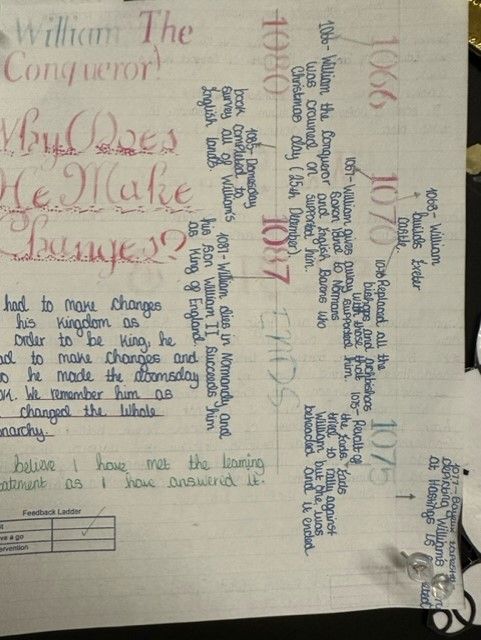 William The
Conqueror!
Why Does
He Make
Changes?
had to make changes
his kingdom as
order to be king, he
to make changes and
he made the doomsday
We remember him as
changed the whole
believe I have met the learning
as I have answered it.
Feedback Ladder
a go
1066
1070
1075
1080
1087
ENDS
1066- William the Conqueror
was crowned on
Christmas day (25th December).
1067- William gives away
Saxon lands to Normans
and English Barons who
supported him.
1068- William
builds Exeter
castle.
1070 Replaced all the
bishops and
with those that
supported him.
1075- Revolt of
the three Earls
tried to rally against
William but one, was
beheaded and it ended
1077- Bayeux
depicting William's
at Hastings is
1085- Domesday
book completed to
survey all of William's
English lands
1087- William dies in Normandy and
his son William II succeeds him
as King of England.